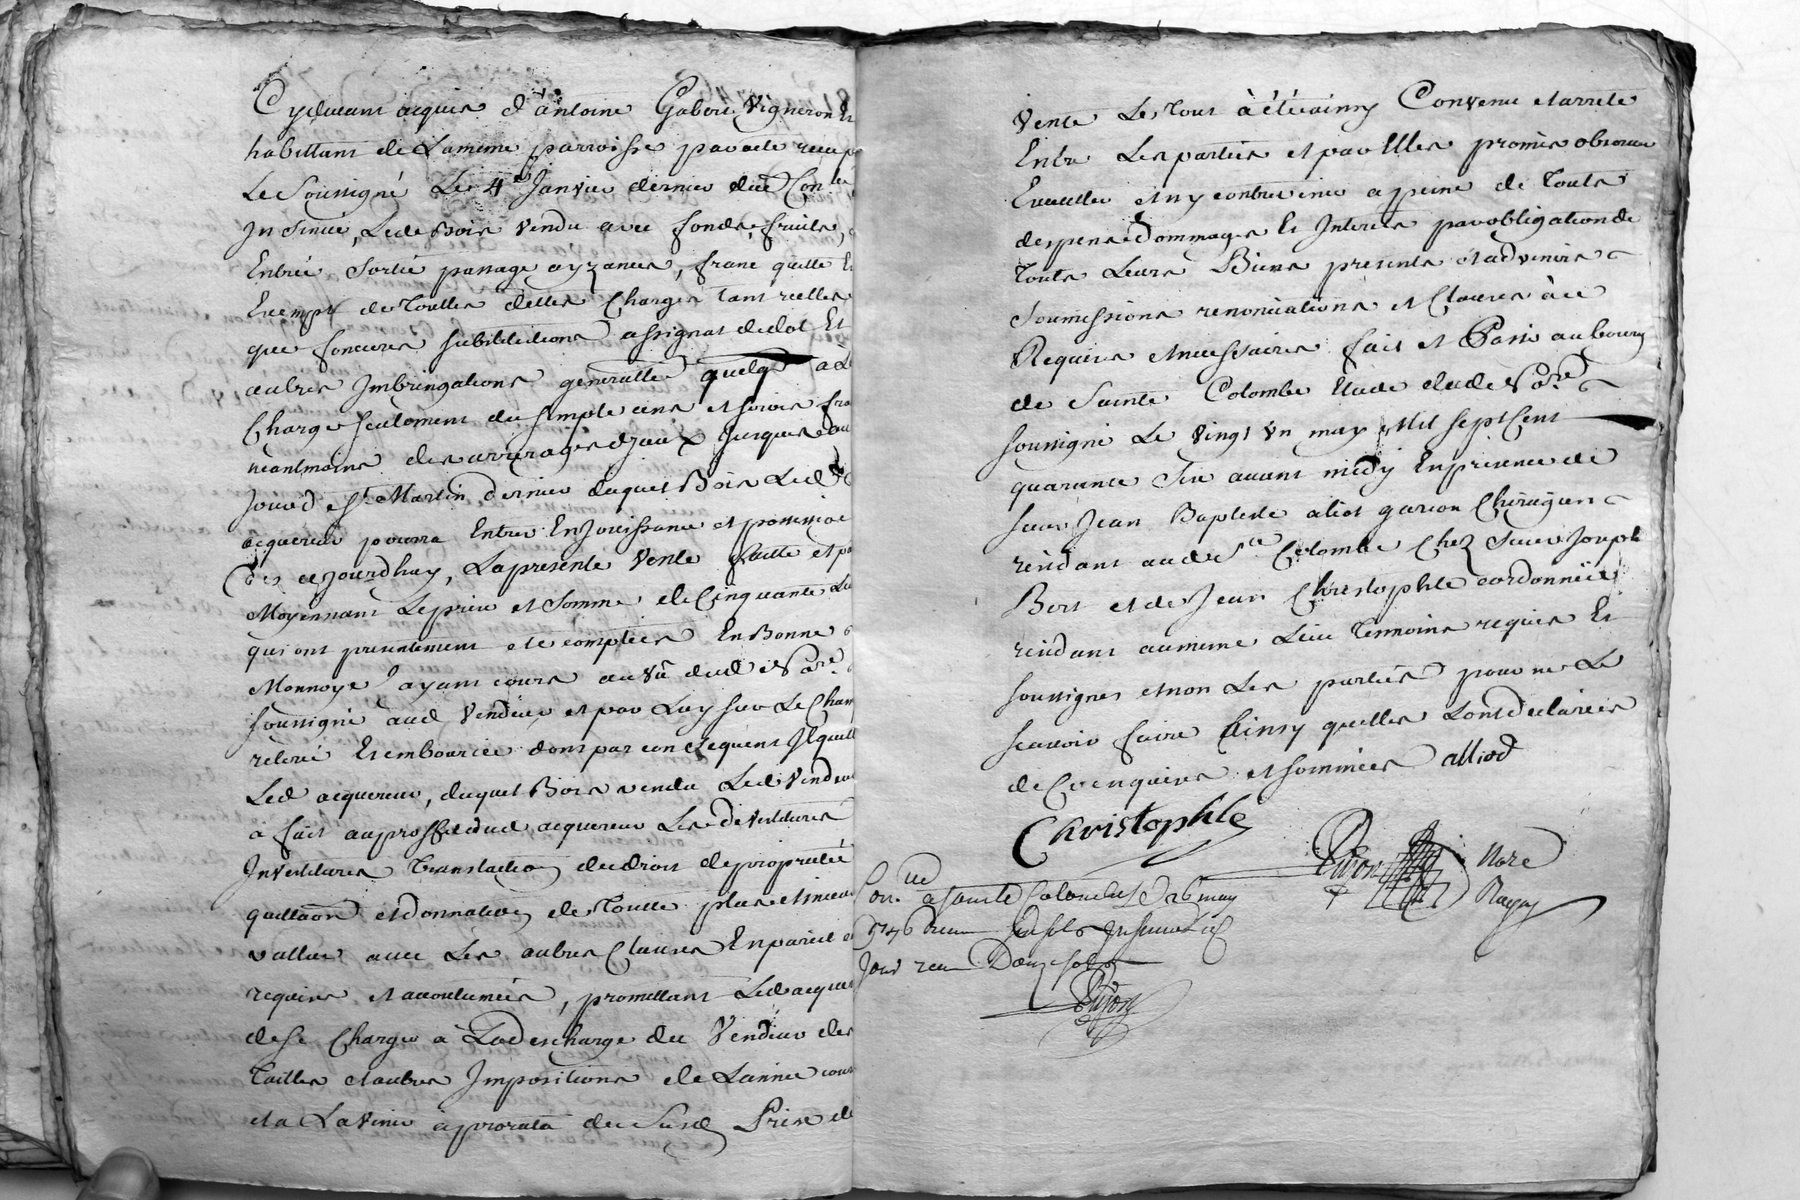 Cydevant acquis d'antoine Gabert Vigneron Et
habittant de Lameme parroisse par acte receu p
Le Soussigné Le 4e Janvier dernier due Con.lee
Insinué, Led Bois vendu avec fonds, fruits,
Entrée Sortie passage ayzances, franc quitte Et
Exempt de touttes dettes Charges tant reelles
que foncieres substitutions assignat dedot Et
autres Imbringations generallet quelq. a La
Charge seulement du simple cens et servis fra
néantmoins des arrerages d'jceux Jusques au
Jour d St Martin dernier duquel Bois Led
acquereur pourra Entrer En Jouissance et possession
des cejourdhuy, La presente Vente faitte et p
Moyennant Le prix et Somme de Cinquante Li
qui ont presentement ete comptées En Bonne
Monnoye ayant cours au vû dud No.re
soussigné aud Vendeur et par Luy sur Le Cham
retiré Et embourcée dont par consequent Il quitt
Led acquereur, duquel Bois vendu Led Vendeur
à fait au proffit dud acquereur Les devestitures
Investitures translation du droit de proprieté
quittaon et donnation de toutte plus et mieux
vallue avec Les autres Clauses En pareil
requises et accoutumées, promettant Led acque
de se Charger a La descharge du Vendeur des
tailles et autres Impositions de Lannée cour
et a Lavenir a prorata du Susd Prix de
vente Le tout à été ainsy Convenu et arreté
Entre Les parties et par Elles promis observer
Executter et ny contrevenir a peine de touts
despens dommages Et Interets par obligation de
touts Leurs Biens presents et advenirs
soumissions renonciations et Clauses à ce
Requises et necessaires fait et Passé au bourg
de Sainte Colombe Etude dud No.re
soussigné Le vingt un may Mil Sept Cent
quarante Six avant midy En presence de
sieur Jean Baptiste aliod garson Chirugien
residant aud Ste Colombe Chez Sieur Joseph
Bert et de Jean Christophle cordonnier
residant au meme Lieu temmoins requis Et
soussignés et non Les parties pour ne Le
scavoir faire Ainsy quelles Lont declarées
de ce enquises et sommées alliod
Christophle
Dujon Nore
Royay
Con.lle a sainte Colombe Le 26 may
1746 Receu
Jour receu Douze sols
Dujon